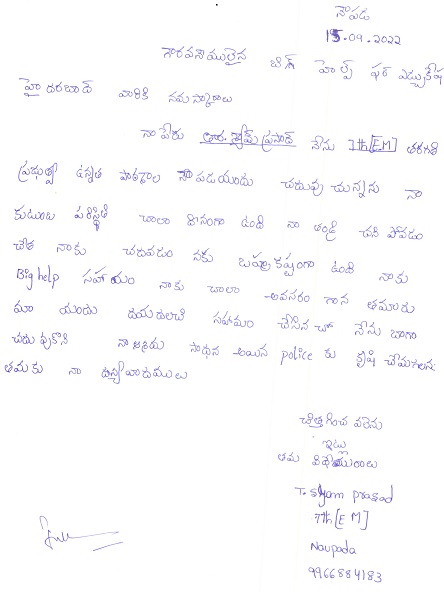 నౌపడ
15.09.2022
గౌరవనీయులైన బిగ్ హెల్ప్ ఫర్ ఎడ్యుకేషన్
హైదరబాద్ వారికి నమస్కారాలు
నా పేరు తారా. శ్యామ్ ప్రసాద్ నేను 7th [EM] తరగతి
ప్రభుత్వ ఉన్నత పాఠశాల నౌపడయందు చదువు చున్నాను నా
కుటుంబ పరిస్థితి చాలా దీనంగా ఉంది నా తండ్రి చని పోవడం
చేత నాకు చదువడం నకు బహుకష్టంగా ఉంది నాకు
Big help సహాయం నాకు చాలా అవసరం గాన తమారు
మా యందు దయదలచి సహాయం చేసిన చో నేను బాగా
చదువుకొని నా సాధన అయిన police కు కృషి చేయగలను
తమకు నా ధన్యవాదములు
చిత్తగించ వలెను
ఇట్లు
తమ విధేయురాలు
T. Shyam prasad
7th [E M]
Naupada
9966884183